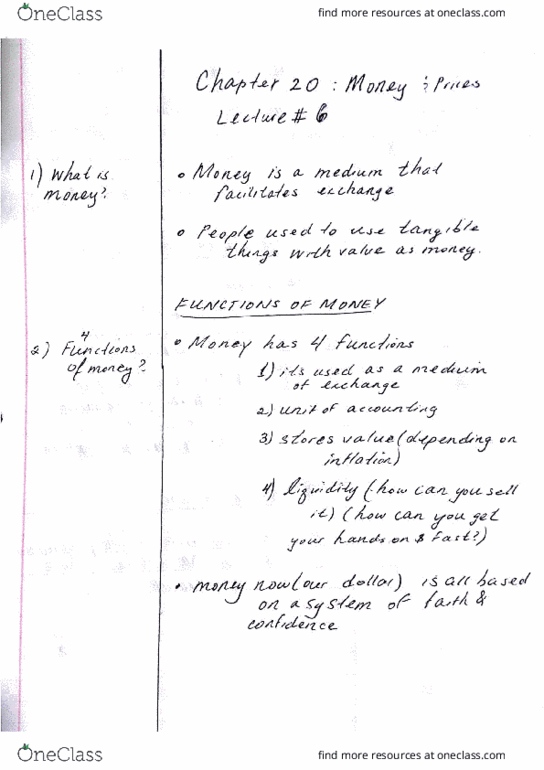 OneClass
find more resources at oneclass.com
Chapter 20 : Money & Prices
Lecture # 6
1) What is
money?
• Money is a medium that
facilitates exchange
• People used to use tangible
things with value as money.
FUNCTIONS OF MONEY
2) 4 Functions
of money?
• Money has 4 functions
1) its used as a medium
of exchange
2) unit of accounting
3) stores value (depending on
inflation)
4) liquidity (how can you sell
it) (how can you get
your hands on $ fast?)
• money now (our dollar) is all based
on a system of faith &
confidence
OneClass
find more resources at oneclass.com